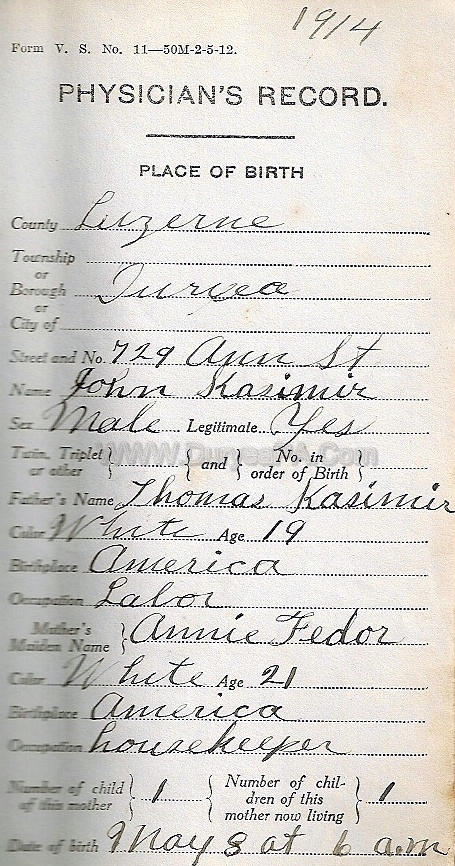 1914
Form V. S. No. 11—50M-2-5-12.
PHYSICIAN'S RECORD.
PLACE OF BIRTH
County Luzerne
Township
or
Borough Duryea
or
City of
Street and No. 729 Ann St
Name John Kasimir
Sex Male Legitimate Yes
WWW.DuryeaPA.Com
Twin, Triplet or other } { and { No. in order of Birth }
Father's Name Thomas Kasimir
Color White Age 19
Birthplace America
Occupation Labor
Mother's Maiden Name } Annie Fedor
Color White Age 21
Birthplace America
Occupation housekeeper
Number of child of this mother } 1 { Number of chil-dren of this mother now living } 1
Date of birth May 8 at 6 a.m